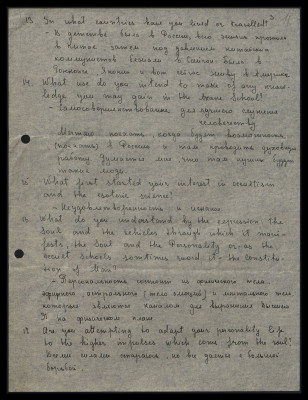 13. In what countries have you lived or travelled?
- В детстве было в России, вся жизнь прошла
в Китае затем под давлением китайских
коммунистов бежали в Сайгон было в
Гонконге и вот сейчас живу в Америке.
14. What use do you intend to make of any know-
ledge you may gain in the Arcane School?
- Самосовершенствование, для лучшего служения
человечеству.
Мечтаю поехать когда будет возможность
в Россию и там проводить духовную
работу Думается мне что там нужны будут
такие люди.
15. What first started your interest in occultism
and the esoteric science?
- Неудовлетворенность и искание.
16. What do you understand by the expression the
Soul and the vehicles through which it mani-
fests; the Soul and the Personality or as the
occult Schools sometimes word it - the constitu-
tion of Man?
- Персональность состоит из физического тела
эфирного астрального (тело эмоций) и ментального тела,
которые являются каналом для выражения высшего
Я на физическом плане
17. Are you attempting to adapt your personality life
to the higher impulses which come from the soul?
Всеми силами стараюсь, но дается с большой
борьбой